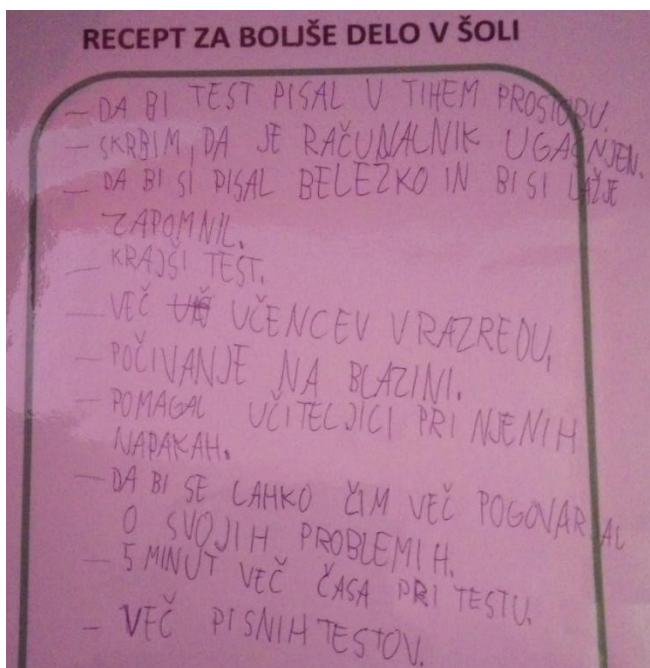 RECEPT ZA BOLJŠE DELO V ŠOLI
– DA BI TEST PISAL V TIHEM PROSTORU.
– SKRBIM, DA JE RAČUNALNIK UGASNJEN.
– DA BI SI PISAL BELEŽKO IN BI SI LAŽJE
ZAPOMNIL.
– KRAJŠI TEST.
– VEČ UČENCEV V RAZREDU,
– POČIVANJE NA BLAZINI.
– POMAGAL UČITELJICI PRI NJENIH
NAPAKAH.
– DA BI SE LAHKO ČIM VEČ POGOVARJAL
O SVOJIH PROBLEMIH.
– 5 MINUT VEČ ČASA PRI TESTU.
– VEČ PISNIH TESTOV.